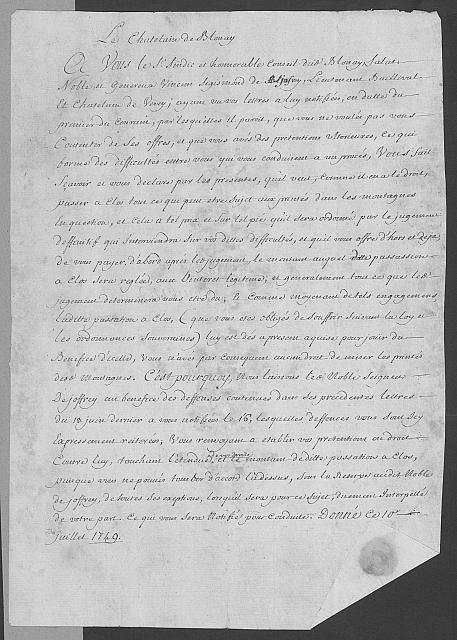 Le Chatelain de Blonay
A Vous le Sr. Sindic et honnorable Conseil dud. Blonay, Salut.
Noble et Genereux Vincent Sigismond de Joffrey, Lieutenant Baillival
et Chatelain de Vevey, ayant vu vos lettres a luy notifiées, en datte du
premier du Courant, par lesquelles il paroit, que vous ne voulés pas vous
Contenter de Ses offres, et que vous avés des pretentions ulterieures, ce qui
forme des difficultés entre vous qui vous conduisent a un procés, Vous fait
Sçavoir et vous declare par les presentes, qu'il veut, comme il en a le droit,
passer a Clos tout ce que peut etre Sujet aux printés dans les montagnes
en question, et Cela a tel prix et Sur tel pié qu'il sera ordonné par le jugement
deffinitif qui Interviendra Sur vos dittes difficultés, et qu'il vous offre d'hors et deja
de vous payer, d'abord apres led. jugement, le montant auquel ditte passassion
a Clos Sera reglée, avec l'interet legitime, et generalement tout ce que led.
jugement determinera vous etre du, & comme moyenant de tels engagemens
laditte passation a Clos, (que vous etes obligés de Souffrir Suivant la loy et
les ordonnances Souveraines) luy est des a present aquise pour jouir du
Benefice d'icelle, vous n'avés par Consequent aucun droit de miser les printés
des d. Montagnes. C'est pourquoy, Nous laissons led. Noble Seigneur
De Joffrey au benefice des deffenses contenues dans Ses précédentes lettres
du 13 juin dernier a vous notifiées le 16, lesquelles deffences vous Sont Icy
a la presence reiterées; Vous renvoyant a etablir vos pretentions en droit
Contre luy, touchant l'étendue, et le montant de ditte passation a Clos,
puisque vous ne pouvés tomber d'acord la dessus, Sous la Reserve aud. Noble
de Joffrey, de toutes Ses exeptions, lorsqu'il sera pour ce Sujet, duement Interpellé
de votre part. Ce qui vous sera Notifié pour Conduite. Donné Ce 10e
juillet 1749.